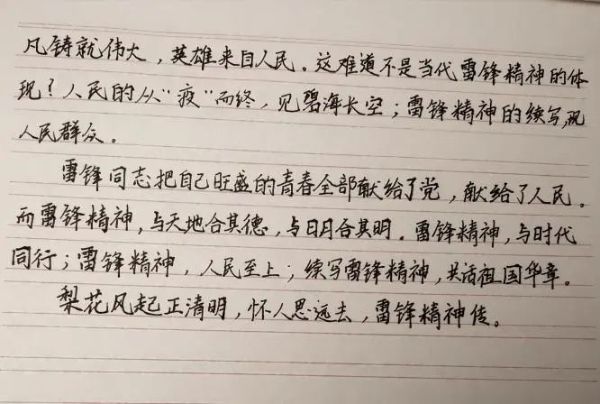 凡铸就伟大，英雄来自人民。这难道不是当代雷锋精神的体
现？人民的从“疫”而终，见碧海长空；雷锋精神的续写，观
人民群众。
雷锋同志把自己旺盛的青春全部献给了党，献给了人民。
而雷锋精神，与天地合其德，与日月合其明。雷锋精神，与时代
同行；雷锋精神，人民至上；续写雷锋精神，共话祖国华章。
梨花风起正清明，怀人思远去，雷锋精神传。